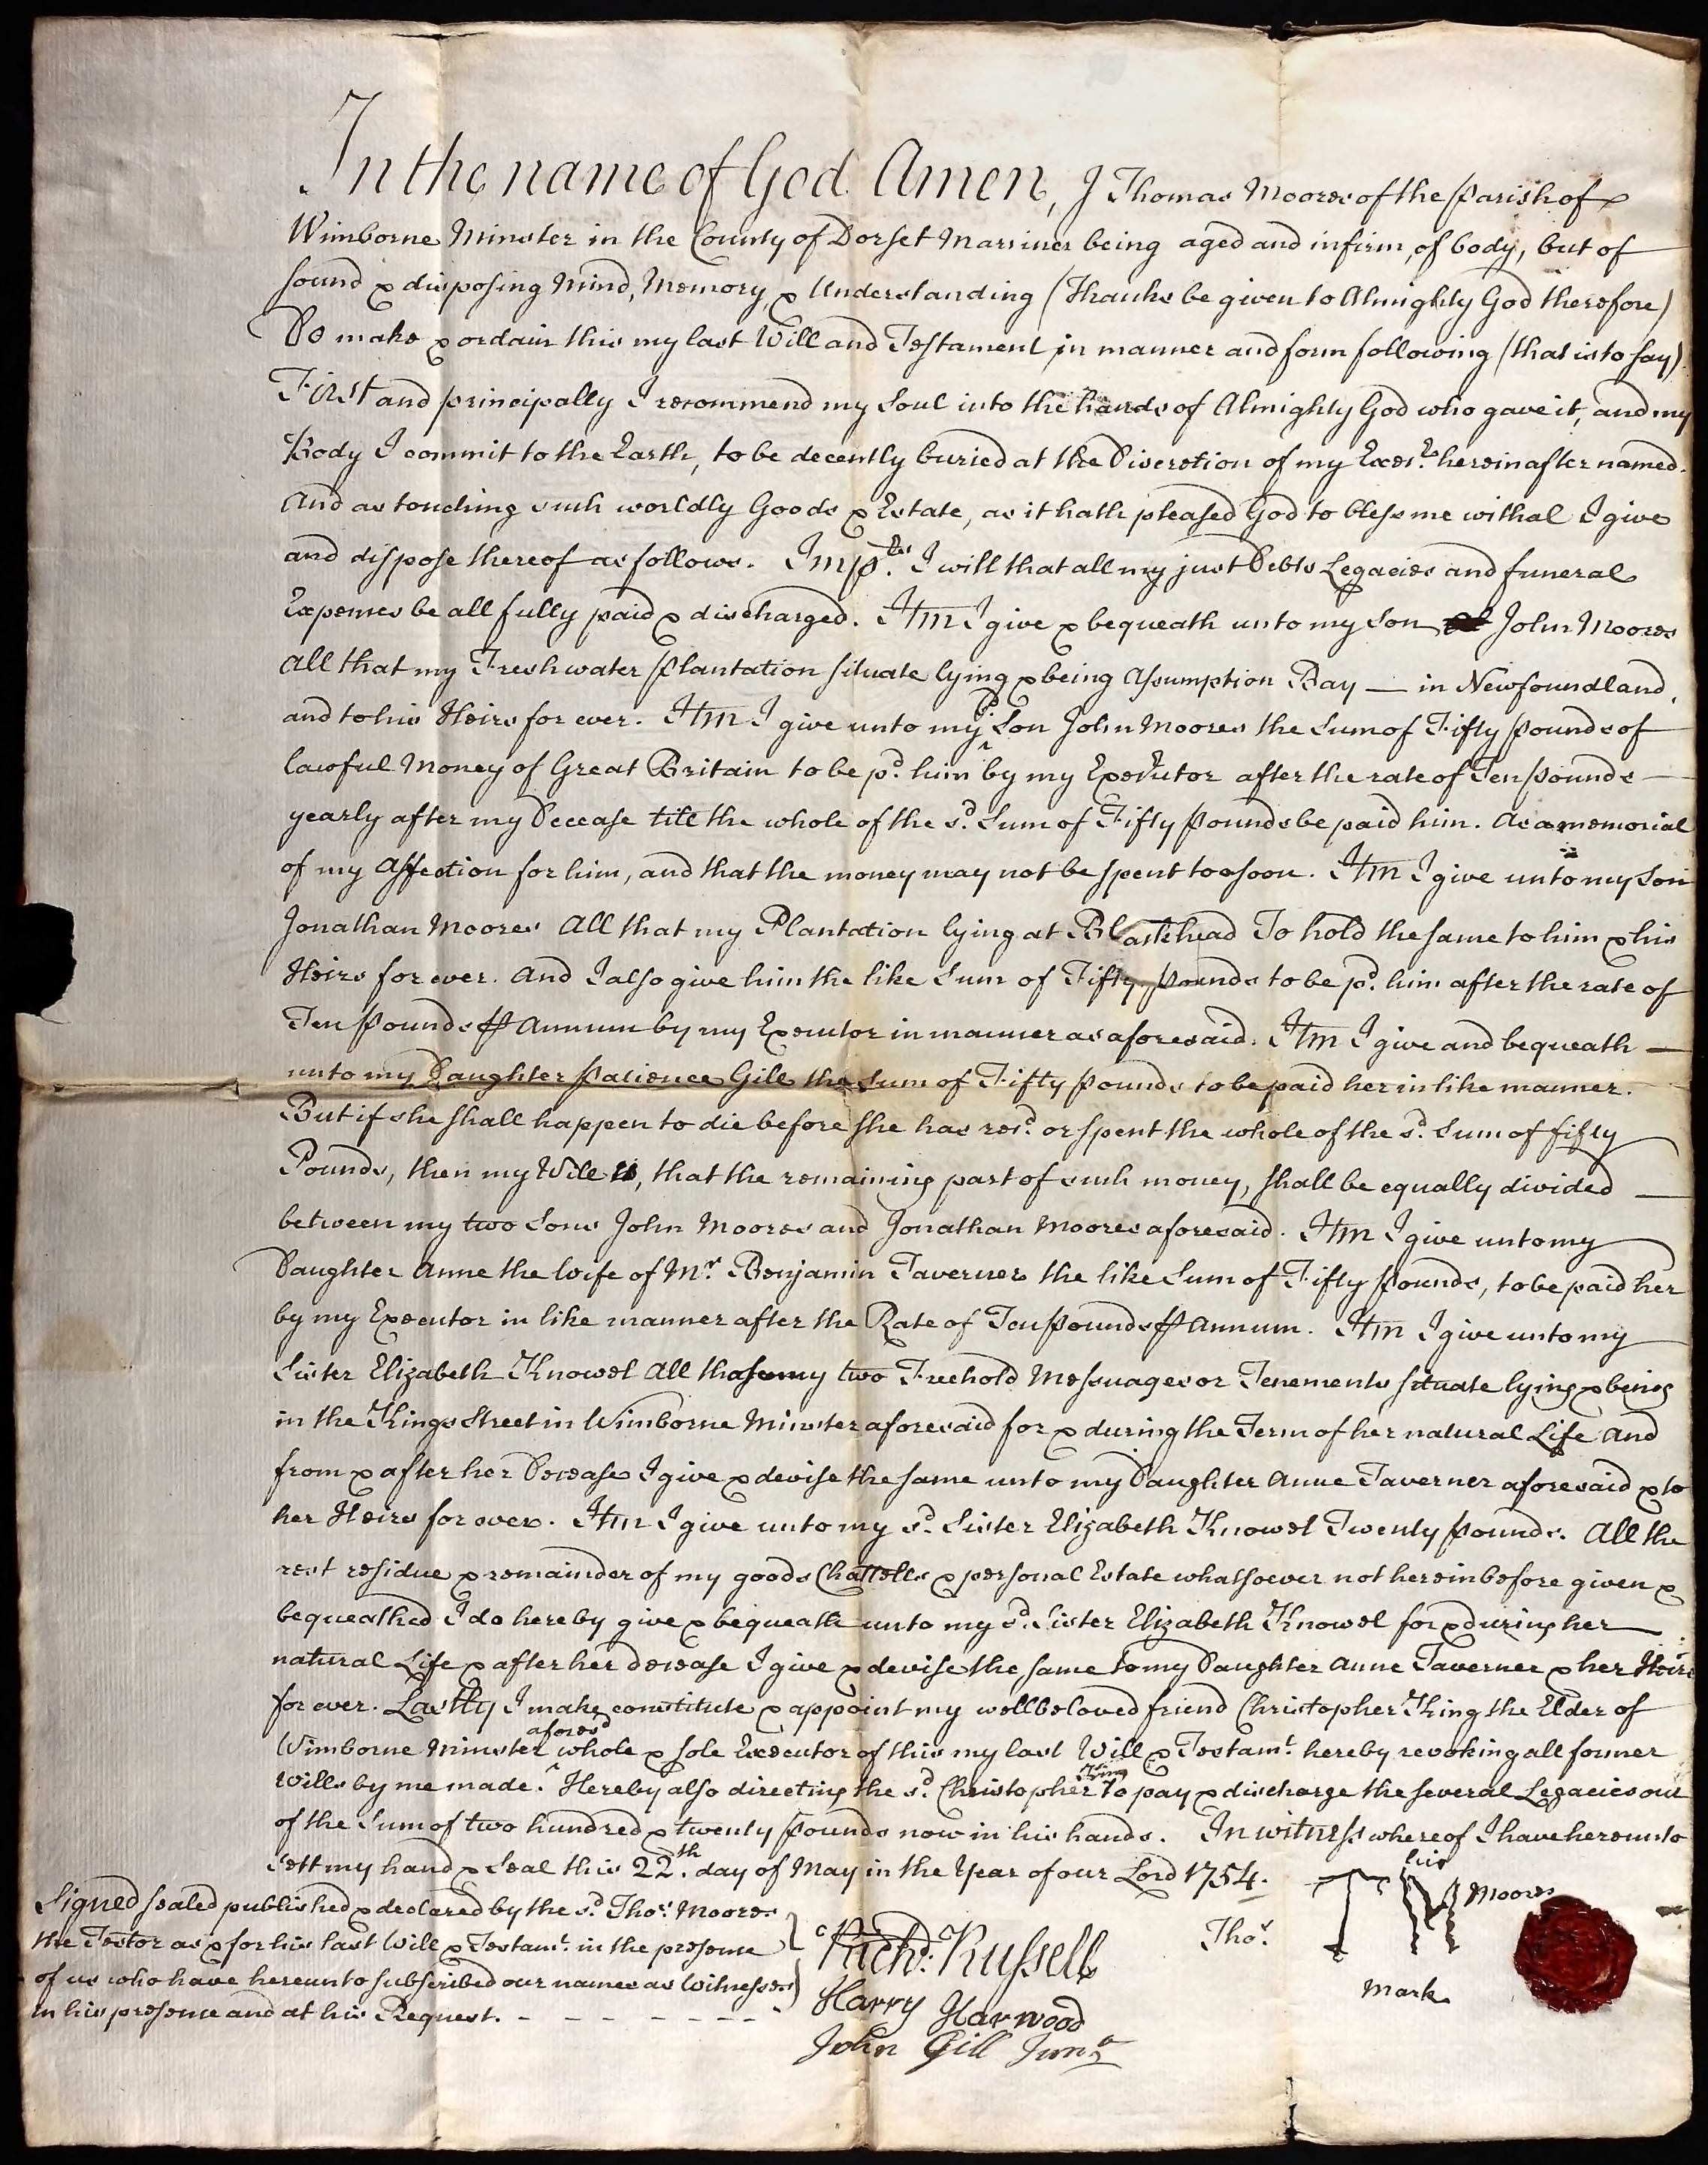 In the name of God Amen, I Thomas Moores of the Parish of &
Wimborne Minster in the County of Dorset Marriner being aged and infirm, of body, but of
sound & disposing Mind, Memory, & Understanding (Thanks be given to Almighty God therefore)
Do make & ordain this my last Will and Testament in manner and form following (that is to say)
First and principally I recommend my Soul into the hands of Almighty God who gave it, and my
Body I commit to the Earth, to be decently buried at the Discretion of my Execr. hereinafter named.
And as touching such worldly Goods & Estate, as it hath pleased God to bless me withal I give
and dispose thereof as follows. Imp. I will that all my just Debts Legacies and funeral
Expences be all fully paid & discharged. Itm I give & bequeath unto my Son John Moores
all that my Freshwater Plantation situate lying & being Assumption Bay — in Newfoundland,
and to his Heirs for ever. Itm I give unto my sd. Son John Moores the Sum of Fifty Pounds of
lawful Money of Great Britain to be pd. him by my Executor after the rate of Ten Pounds —
yearly after my Decease till the whole of the sd. Sum of Fifty Pounds be paid him. As a memorial
of my Affection for him, and that the money may not be spent too soon. Itm I give unto my Son
Jonathan Moores All that my Plantation lying at Blackhead To hold the same to him & his
Heirs for ever. And I also give him the like Sum of Fifty Pounds to be pd. him after the rate of
Ten Pounds ⅌ Annum by my Executor in manner as aforesaid. Itm I give and bequeath —
unto my Daughter Patience Gill the Sum of Fifty Pounds to be paid her in like manner.
But if she shall happen to die before she has recd. or spent the whole of the sd. Sum of fifty
Pounds, then my Will is, that the remaining part of such money, shall be equally divided —
between my two Sons John Moores and Jonathan Moores aforesaid. Itm I give unto my
Daughter Anne the Wife of Mr. Benjamin Taverner the like Sum of Fifty Pounds, to be paid her
by my Executor in like manner after the Rate of Ten Pounds ⅌ Annum. Itm I give unto my
Sister Elizabeth Knowel All those my two Freehold Messuages or Tenements situate lying & being
in the Kings Street in Wimborne Minster aforesaid for & during the Term of her natural Life And
from & after her Decease I give & devise the same unto my Daughter Anne Taverner aforesaid & to
her Heirs for ever. Itm I give unto my sd. Sister Elizabeth Knowel Twenty Pounds. All the
rest residue & remainder of my goods Chattells & personal Estate whatsoever not hereinbefore given &
bequeathed I do hereby give & bequeath unto my sd. Sister Elizabeth Knowel for & during her
natural Life & after her decease I give & devise the same to my Daughter Anne Taverner & her Heirs
for ever. Lastly I make constitute & appoint my wellbeloved friend Christopher King the Elder of
Wimborne Minster aforesd whole & sole Executor of this my last Will & Testamt. hereby revoking all former
Wills by me made. Hereby also directing the sd. Christopher King to pay & discharge the several Legacies out
of the Sum of two hundred & twenty Pounds now in his hands. In witness whereof I have hereunto
sett my hand & Seal this 22th. day of May in the Year of our Lord 1754.
Signed sealed published & declared by the sd. Thos. Moores
the Testor as & for his last Will & Testamt. in the presence
of us who have hereunto subscribed our names as Witnesses
in his presence and at his Request.
Richd. Russell
Harry Harwood
John Gill Junr
his
Thos. TM Moores
Mark